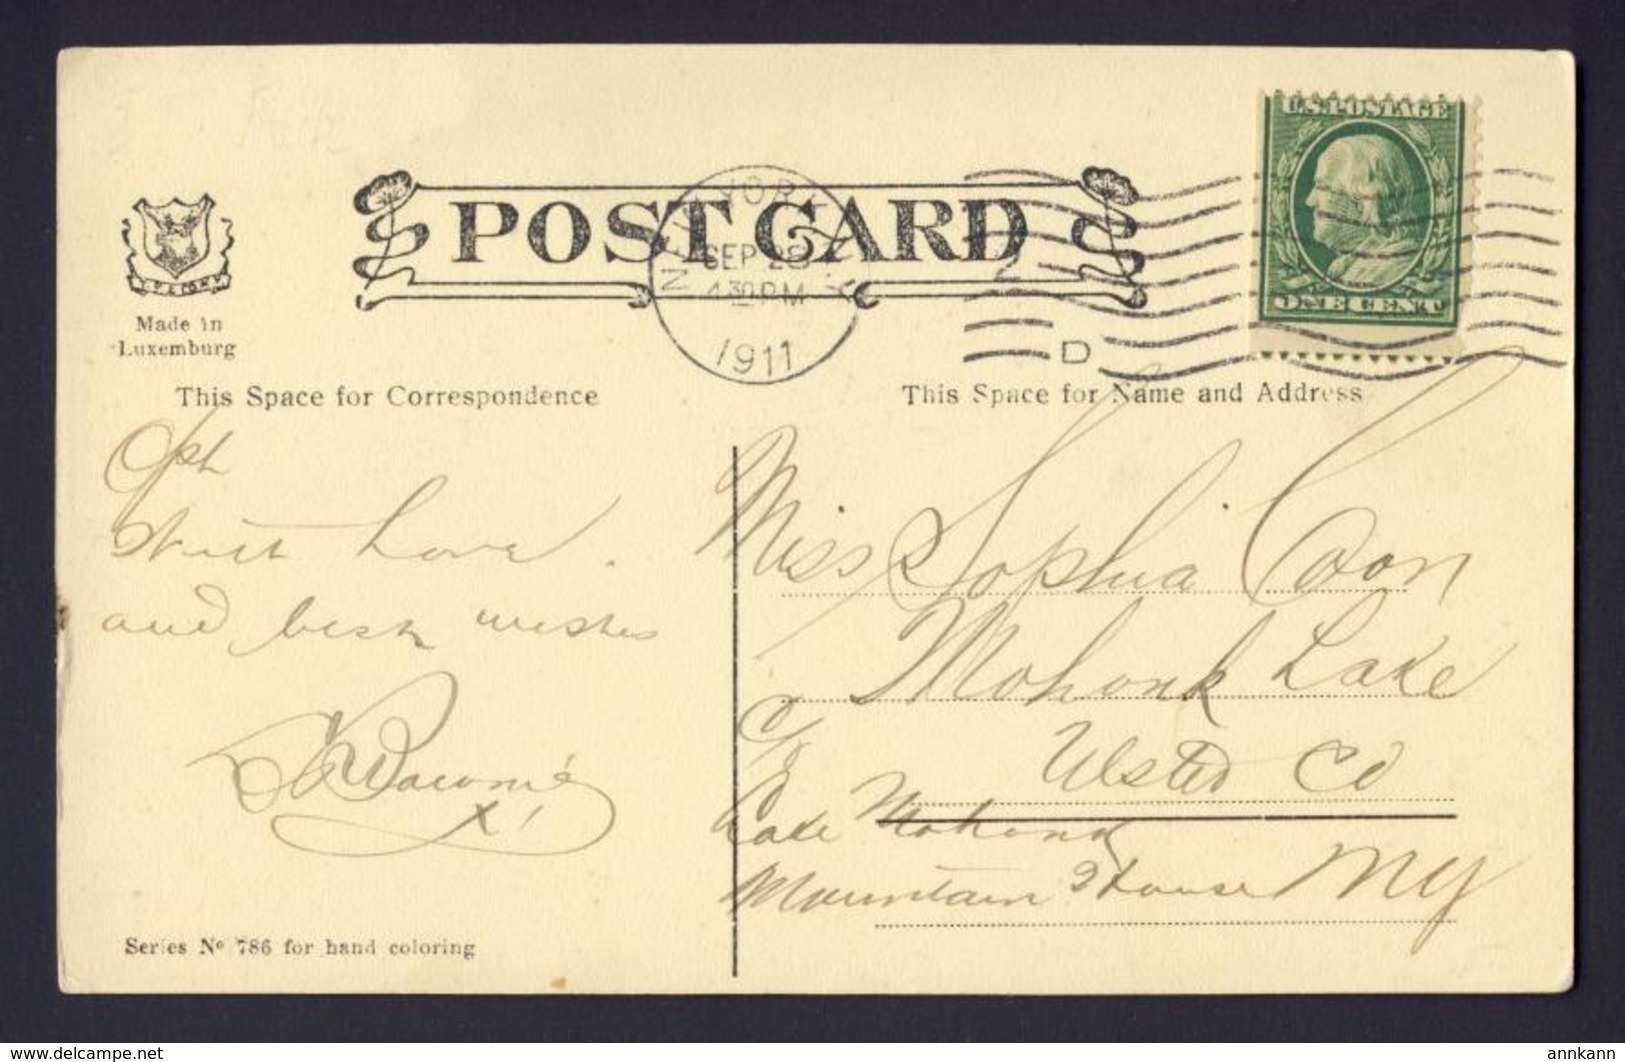 U.S. POSTAGE
ONE CENT
POST CARD
NEW YORK, N.Y.
SEP 28
4 30 PM
1911
D
Made in
Luxemburg
This Space for Correspondence
This Space for Name and Address
With Love.
and best wishes
Miss Sophia Coon
Mohonk Lake
Ulster Co
Lake Mohonk
Mountain House N Y
Series No 786 for hand coloring
delcampe.net
annkann